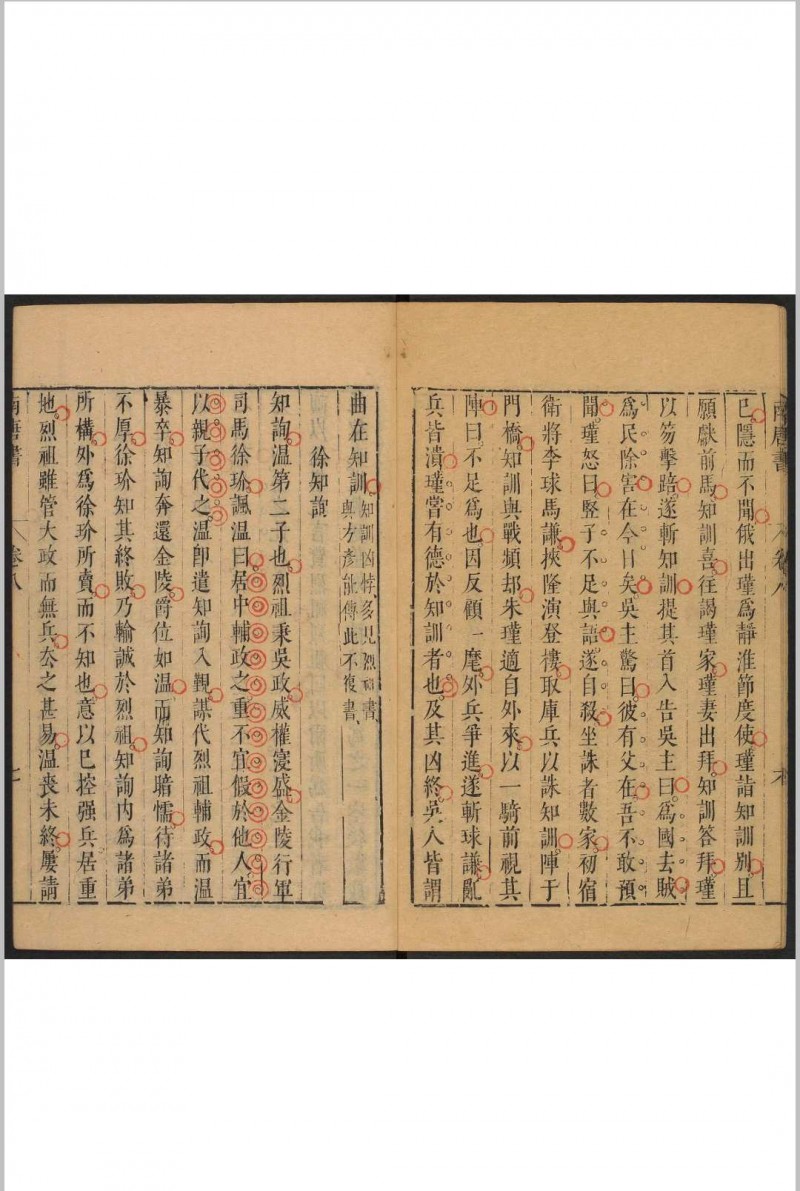 已隱而不聞俄出瑾爲靜淮節度使瑾詣知訓别且
願獻前馬知訓喜往謁瑾家瑾妻出拜知訓答拜瑾
以笏擊踣遂斬知訓提其首入告吳主曰爲國去賊
爲民除害在今日矣吳主驚曰彼有父在吾不敢預
聞瑾怒曰豎子不足與語遂自殺坐誅者數家初宿
衛將李球馬謙挾隆演登樓取庫兵以誅知訓陣于
門橋知訓與戰頻却朱瑾適自外來以一騎前視其
陣曰不足爲也因反顧一麾外兵爭進遂斬球謙亂
兵皆潰瑾嘗有德於知訓者也及其凶終吳人皆謂
曲在知訓知訓凶悖多見烈祖書
與方彥訨傳此不復書
徐知詢
知詢溫第二子也烈祖秉吳政威權寖盛金陵行軍
司馬徐玠諷溫曰居中輔政之重不宜假於他人宜
以親子代之溫卽遣知詢入覲謀代烈祖輔政而溫
暴卒知詢奔還金陵爵位如溫而知詢暗懦待諸弟
不厚徐玠知其終敗乃輸誠於烈祖知詢內爲諸弟
所構外爲徐玠所賣而不知也意以已控强兵居重
地烈祖雖管大政而無兵厺之甚易溫喪未終屢請
南唐書
卷八
七